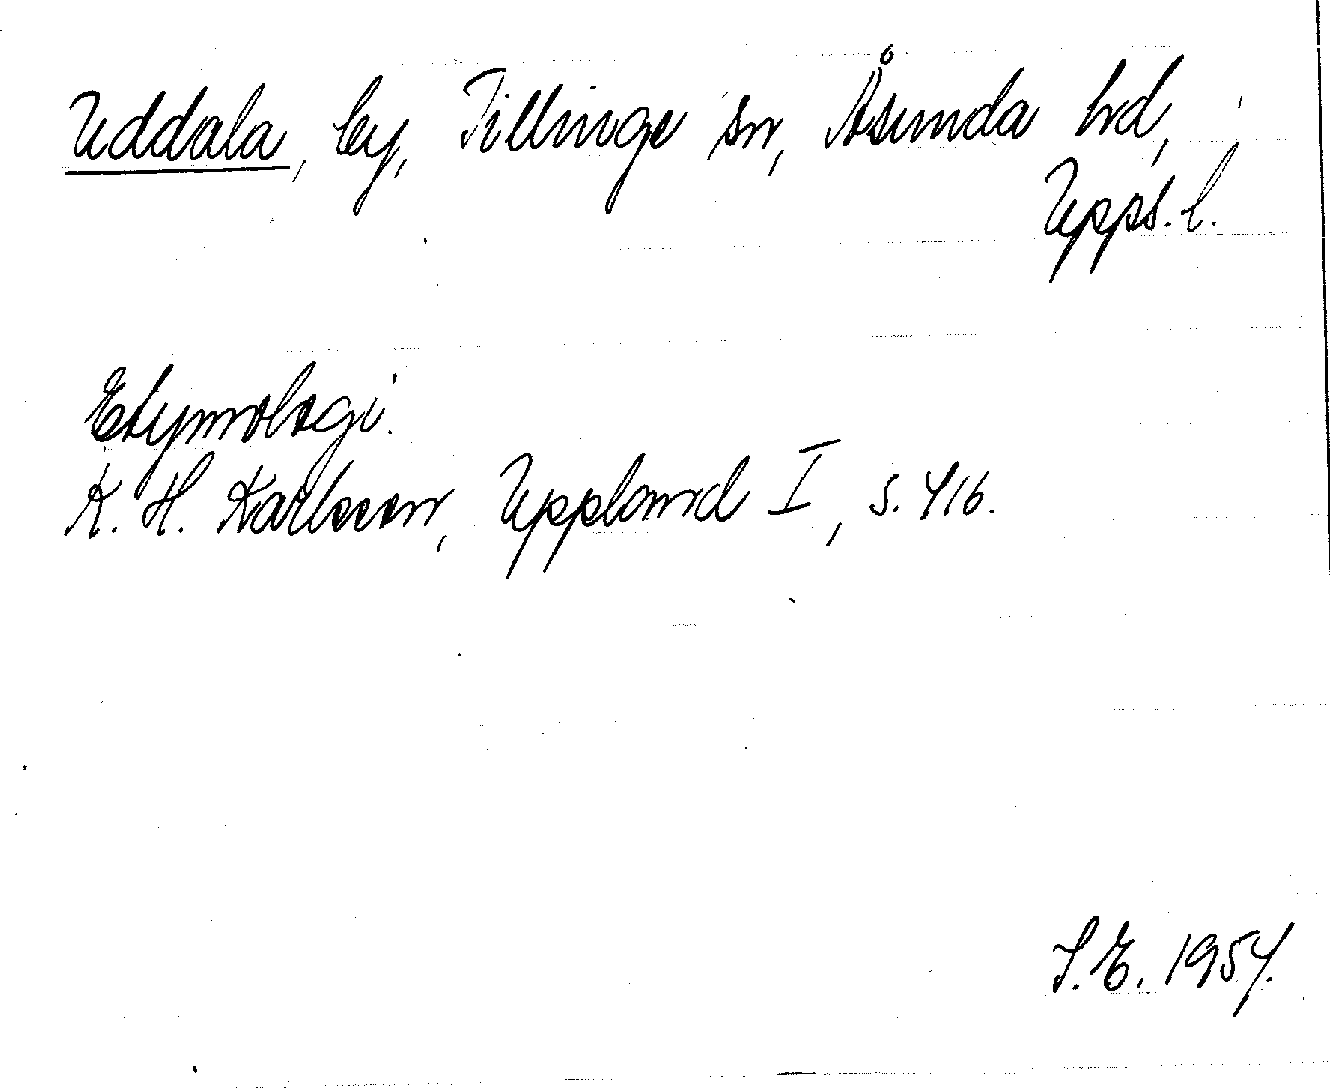 Uddala, by, Tillinge sn, Åsunda hd,
Upps. l.
Etymologi.
K. H. Karlsson, Uppland I, s. 416.
S. E. 1954.